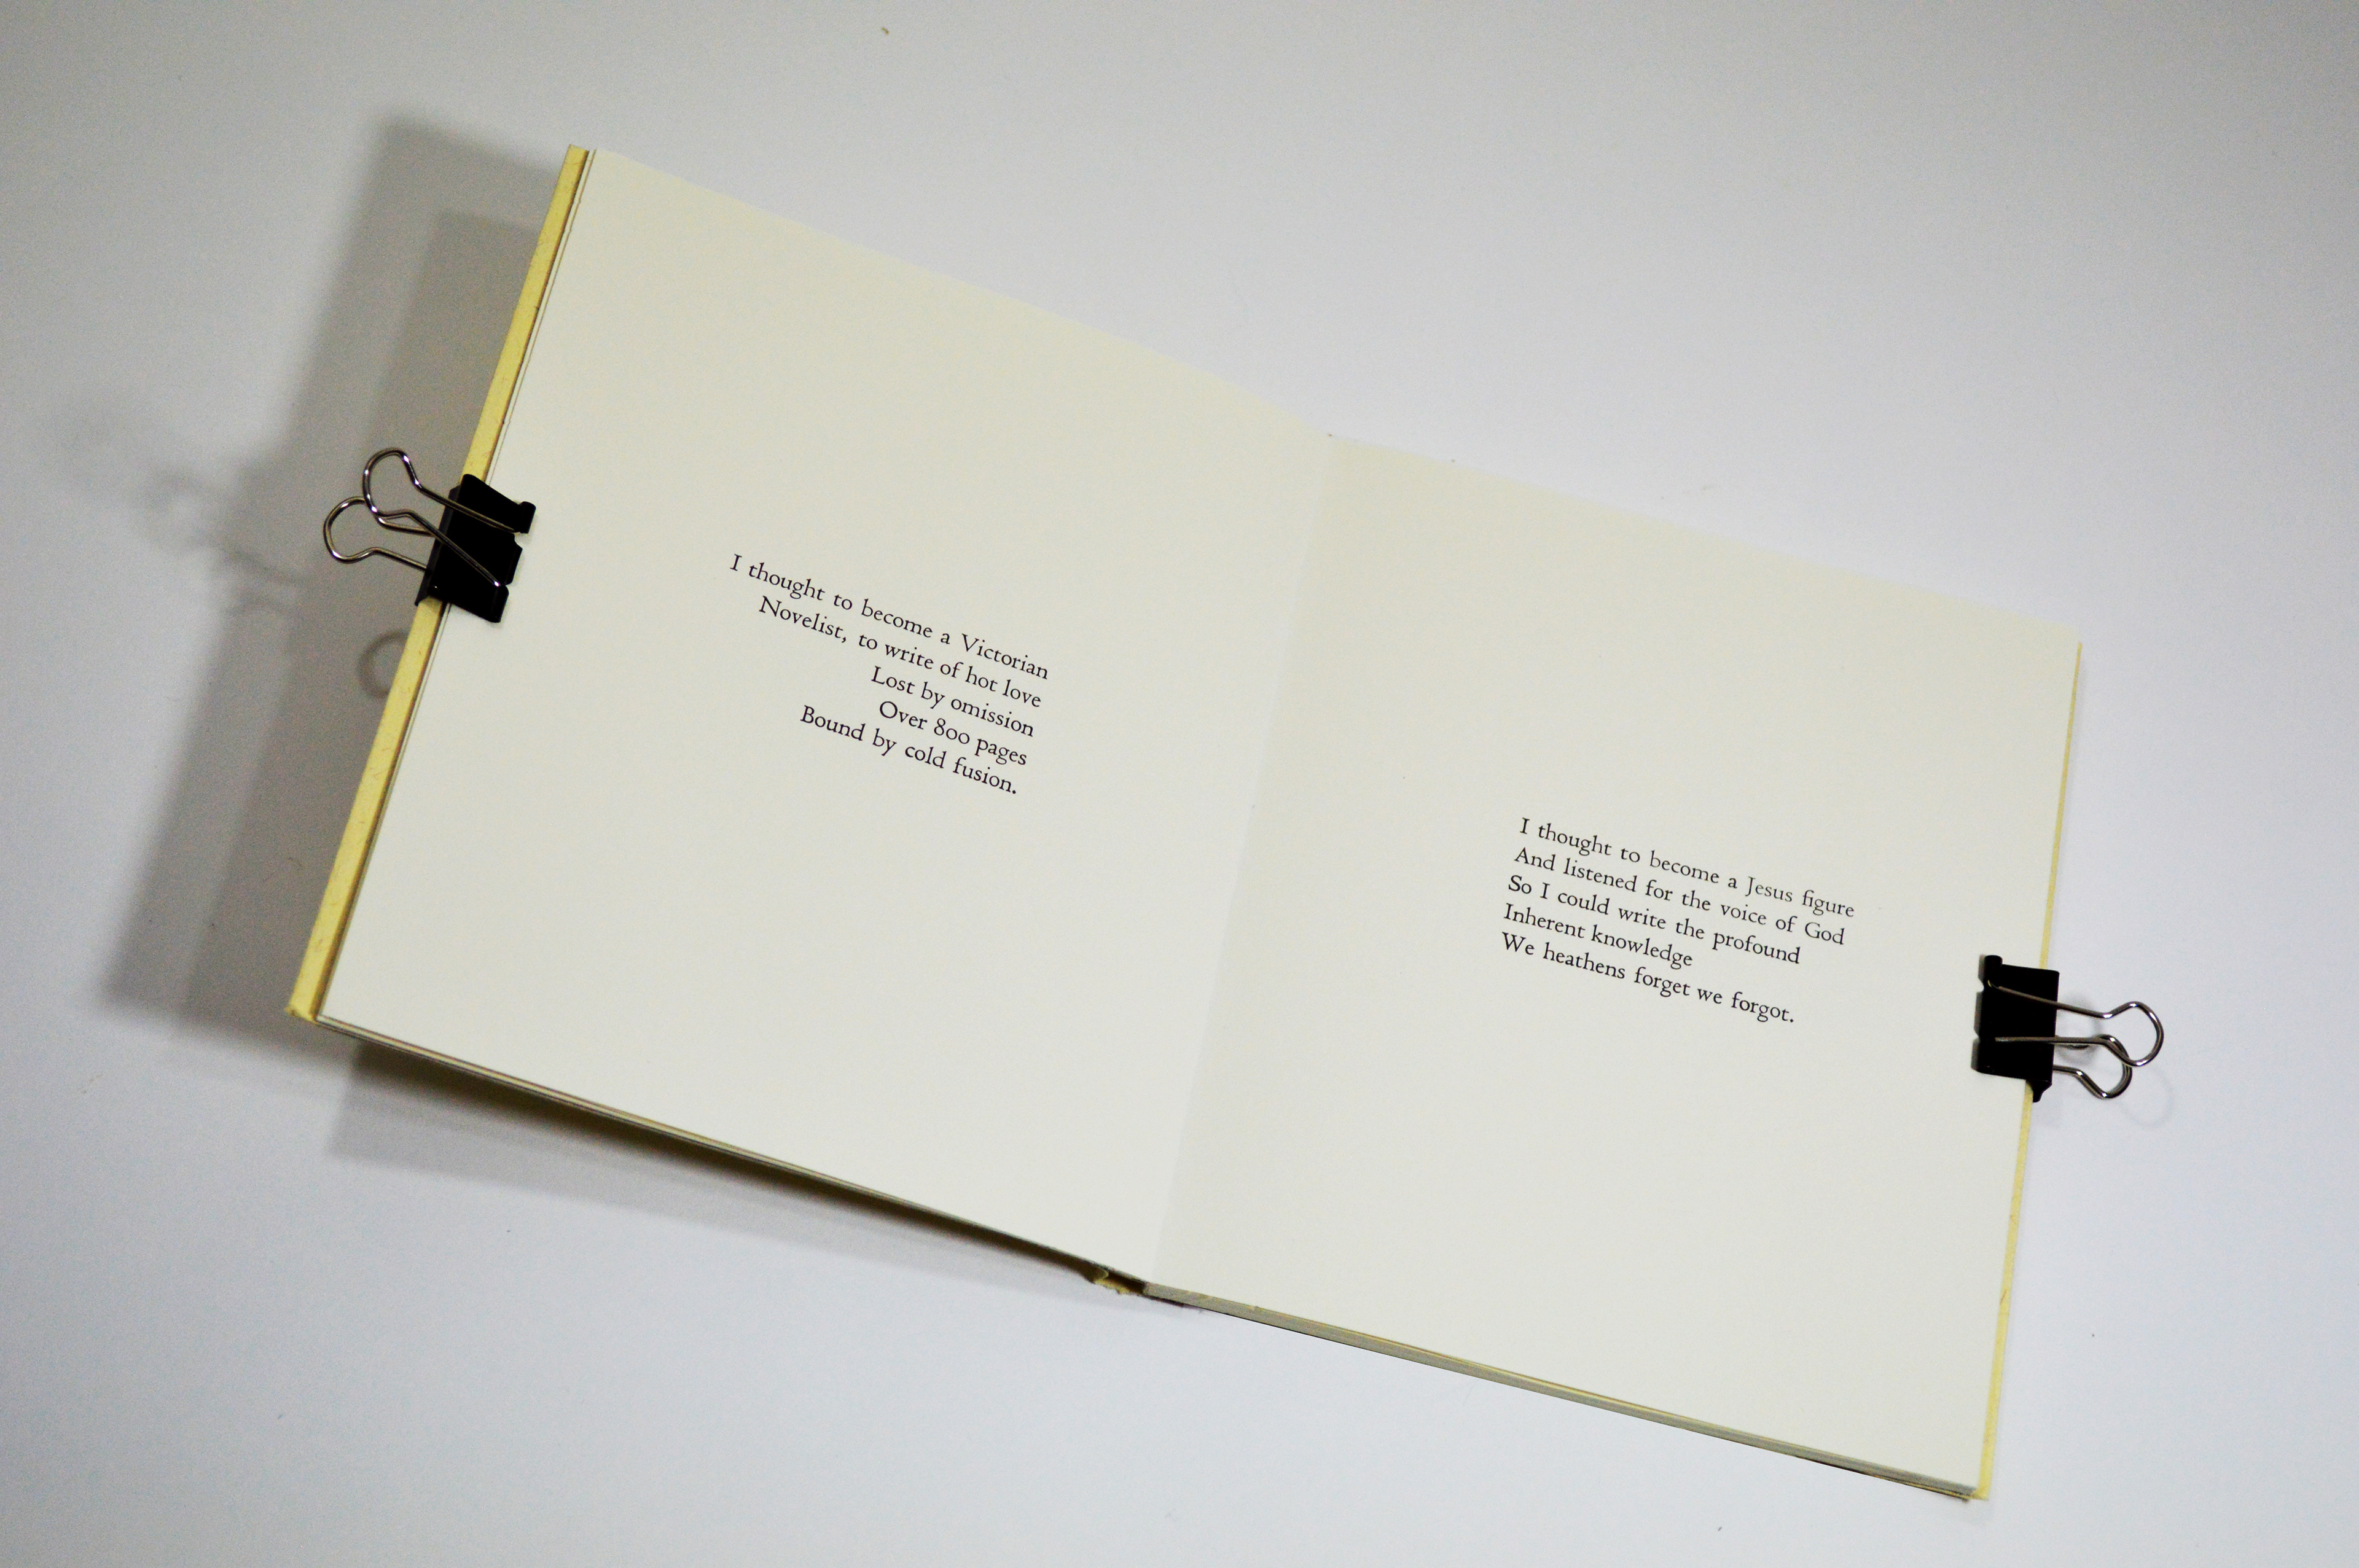 I thought to become a Victorian
Novelist, to write of hot love
Lost by omission
Over 800 pages
Bound by cold fusion.
I thought to become a Jesus figure
And listened for the voice of God
So I could write the profound
Inherent knowledge
We heathens forget we forgot.